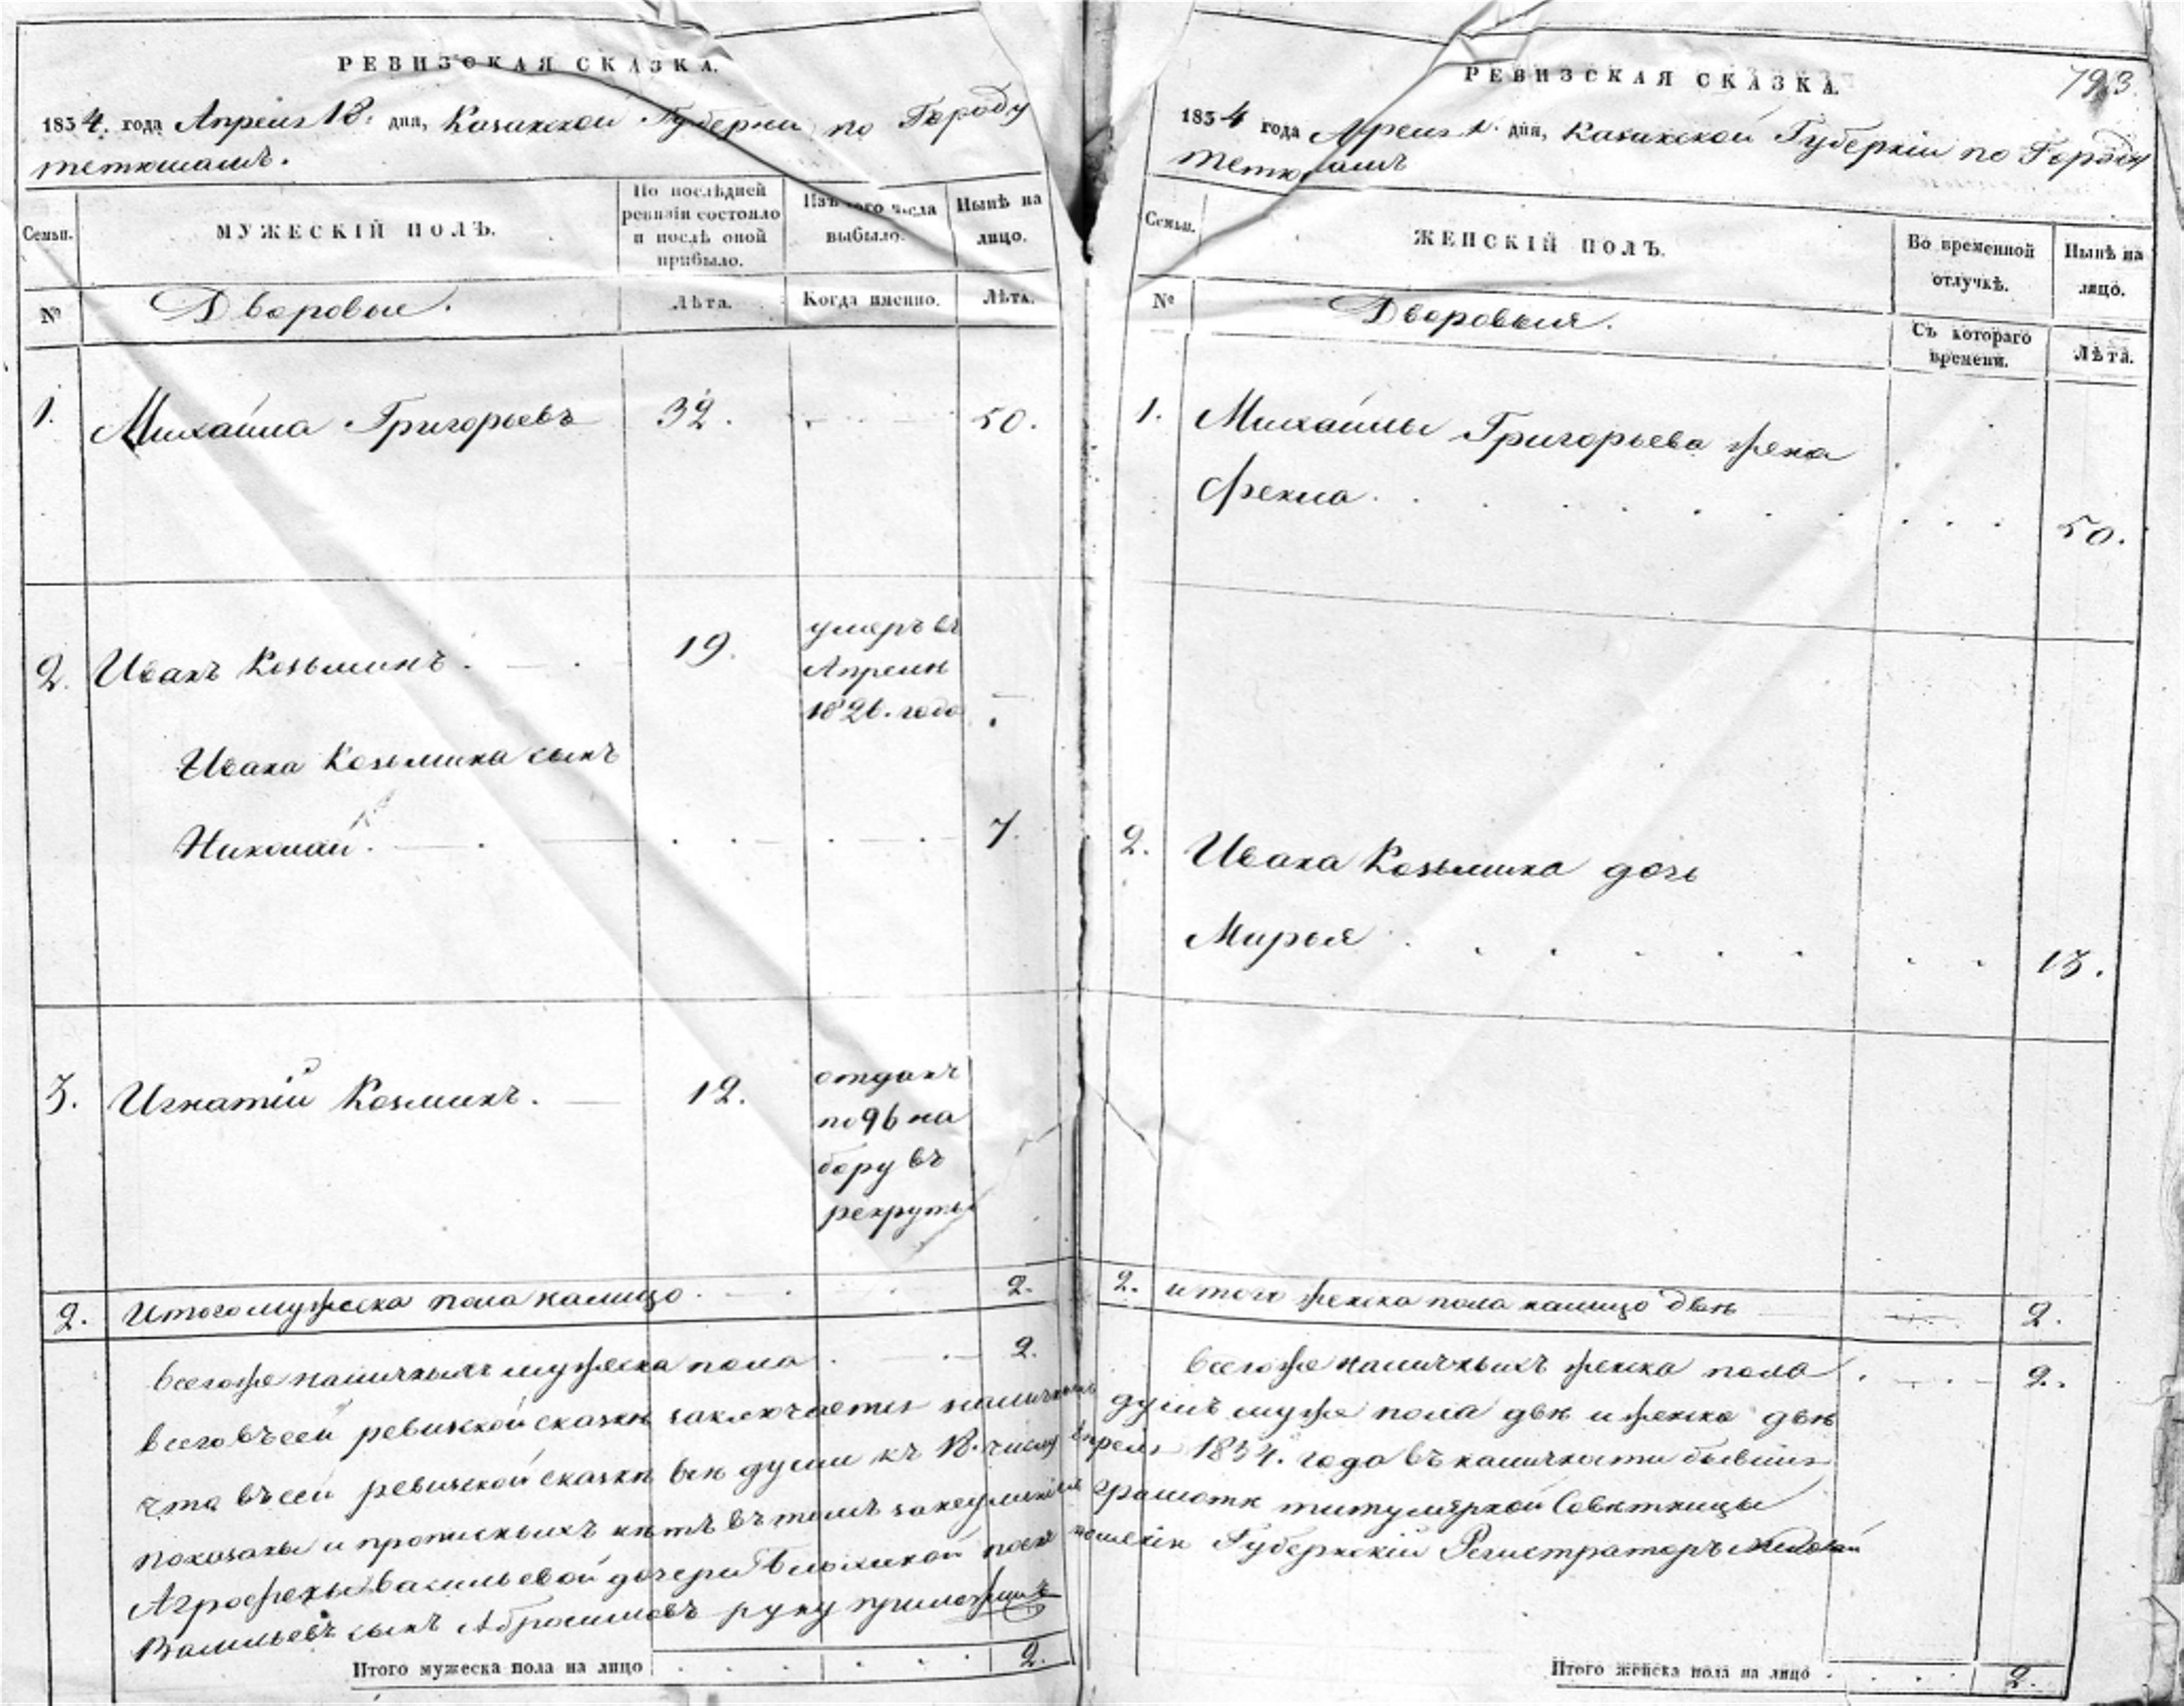 РЕВИЗСКАЯ СКАЗКА.
1834. года Апреля 18. дня, Казанской Губерни по Городу
тетюшамъ.
Семьи.
МУЖЕСКІЙ ПОЛЪ.
По послѣдней
ревизіи состояло
и послѣ оной
прибыло.
Изъ того числа
выбыло.
Нынѣ на
лицо.
№
Дворовые.
Лѣта.
Когда именно.
Лѣта.
1. Михайла Григорьевъ 32. 50.
2. Иванъ Козьминъ. 19.
умеръ въ
Апреле
1826. года
Ивана Козьмина сынъ
Николай. 7.
3. Игнатій Козминъ. 12.
отданъ
по 96 на
бору въ
рекруты
2. Итого мужеска пола налицо. 2.
всегоже наличныхъ мужеска пола. 2.
всего въ сей ревизской сказкѣ заключается наличныхъ
что въ сей ревизской сказкѣ всѣ души къ 18. числу
показаны и прописныхъ нѣтъ въ томъ
Агрофены Васильевой дочери
Васильевъ сынъ Абросимовъ руку приложилъ
Итого мужеска пола на лицо 2.
793
РЕВИЗСКАЯ СКАЗКА.
1834 года дня, Казанской Губерніи по Городу
тетюшамъ
Семьи.
ЖЕНСКІЙ ПОЛЪ.
Во временной
отлучкѣ.
Нынѣ на
лицо.
№
Дворовыя.
Съ котораго
времени.
Лѣта.
1. Михайлы Григорьева жена
Фекла. 50.
2. Ивана Козьмина дочь
Марья 13.
2. итого женска пола налицо двѣ 2.
всегоже наличныхъ женска пола. 2.
душъ муже пола двѣ и женска двѣ
Апреля 1834. года въ наличности бывшия
грамотѣ титулярной Совѣтницы
Губернскій Регистраторъ
Итого женска пола на лицо 2.